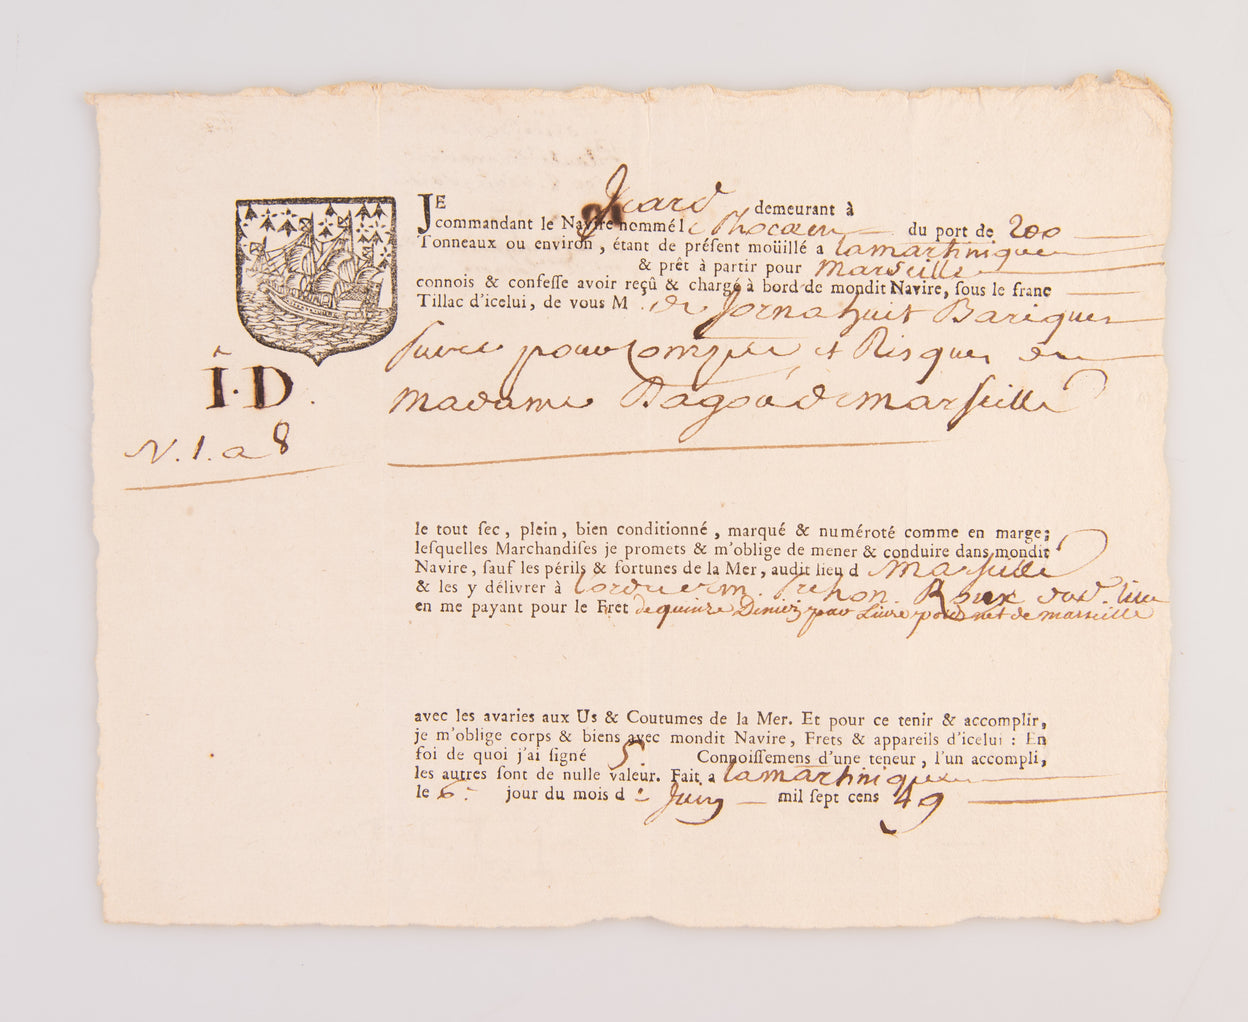 JE Icard demeurant à
commandant le Navire nommé le Phocéen du port de 200
Tonneaux ou environ, étant de préſent moüillé a lamartinique
& prêt à partir pour marseille
connois & confeſſe avoir reçû & chargé à bord de mondit Navire, ſous le franc
Tillac d'icelui, de vous M de Jorna huit Bariques
ſucre pour Compte et Risques de
Î·D.
madame Dagoé de marſeille
N. 1. a 8
le tout ſec, plein, bien conditionné, marqué & numéroté comme en marge;
leſquelles Marchandiſes je promets & m'oblige de mener & conduire dans mondit
Navire, ſauf les périls & fortunes de la Mer, audit lieu d marſeille
& les y délivrer à Roux lieu
en me payant pour le Fret de quinze Deniers par Livre poids net de marseille
avec les avaries aux Us & Coutumes de la Mer. Et pour ce tenir & accomplir,
je m'oblige corps & biens avec mondit Navire, Frets & appareils d'icelui : En
foi de quoi j'ai ſigné 5. Connoiſſemens d'une teneur, l'un accompli,
les autres ſont de nulle valeur. Fait a lamartinique
le 6 jour du mois de Juin mil ſept cens 49